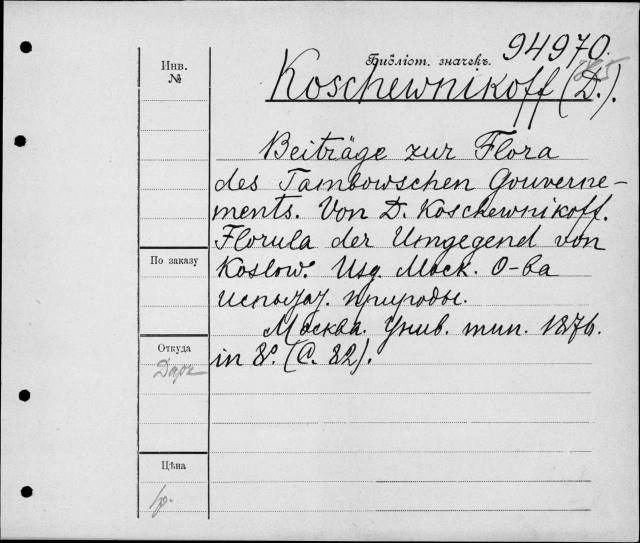 94970.
Инв.
№
Библіот. значекъ.
Koschewnikoff (D.).
Beiträge zur Flora
des Tambowschen Gouverne-
ments. Von D. Koschewnikoff.
Florula der Umgegend von
Koslow. Изд. Моск. О-ва
испытат. природы.
Москва. Унив. тип. 1876.
in 8º. (С. 82).
По заказу
Откуда
Даръ
Цѣна